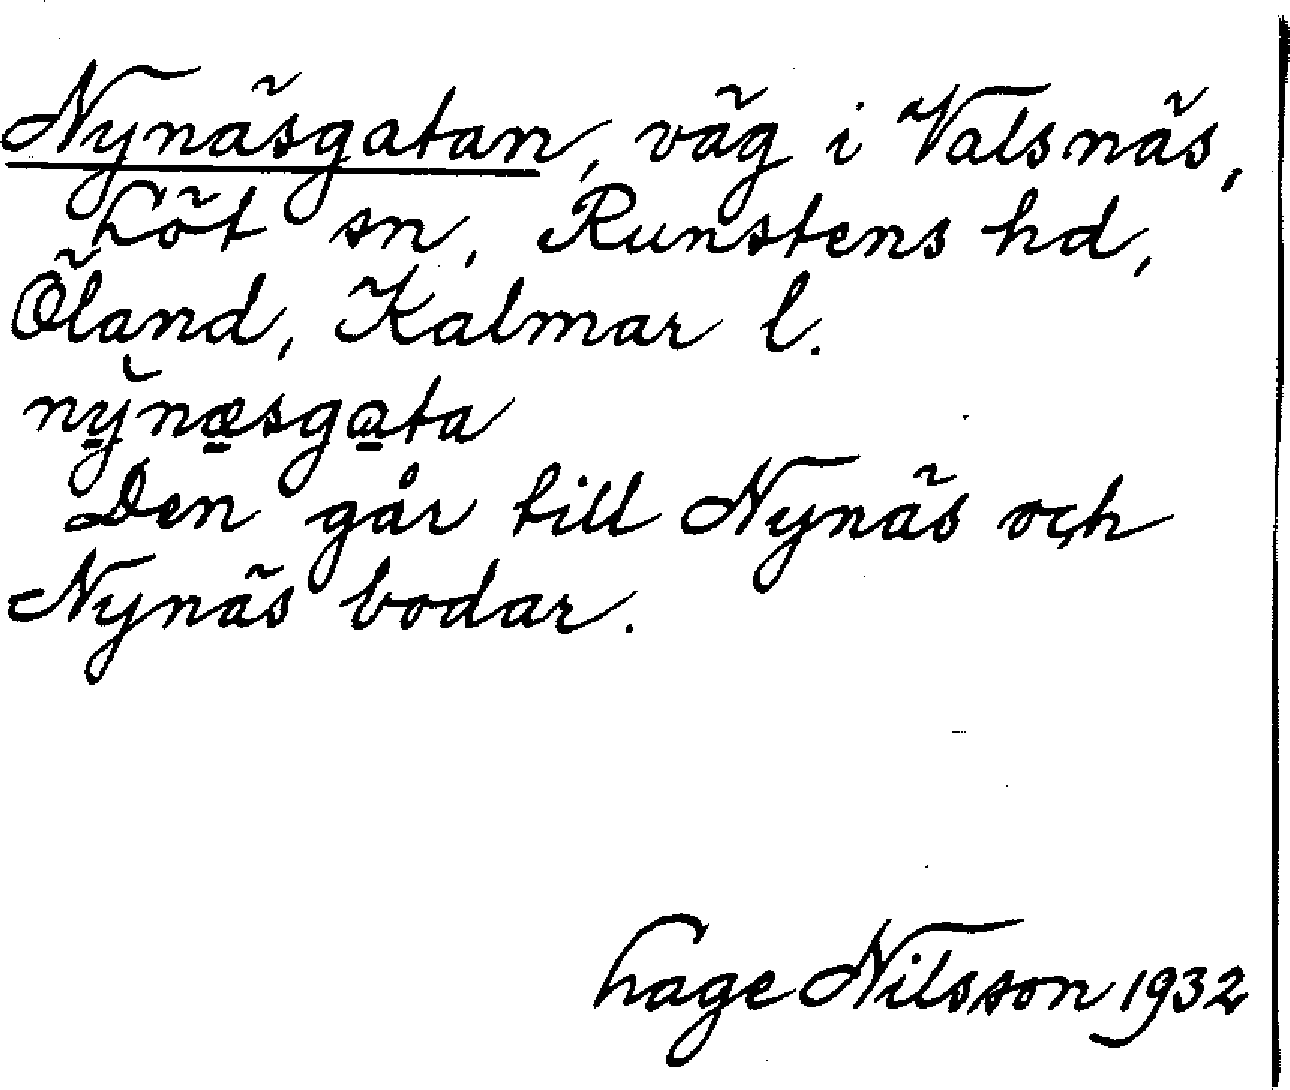 Nynäsgatan, väg i Valsnäs,
Löt sn, Runstens hd,
Öland, Kalmar l.
nynæsgata
Den går till Nynäs och
Nynäs bodar.
Hage Nilsson 1932